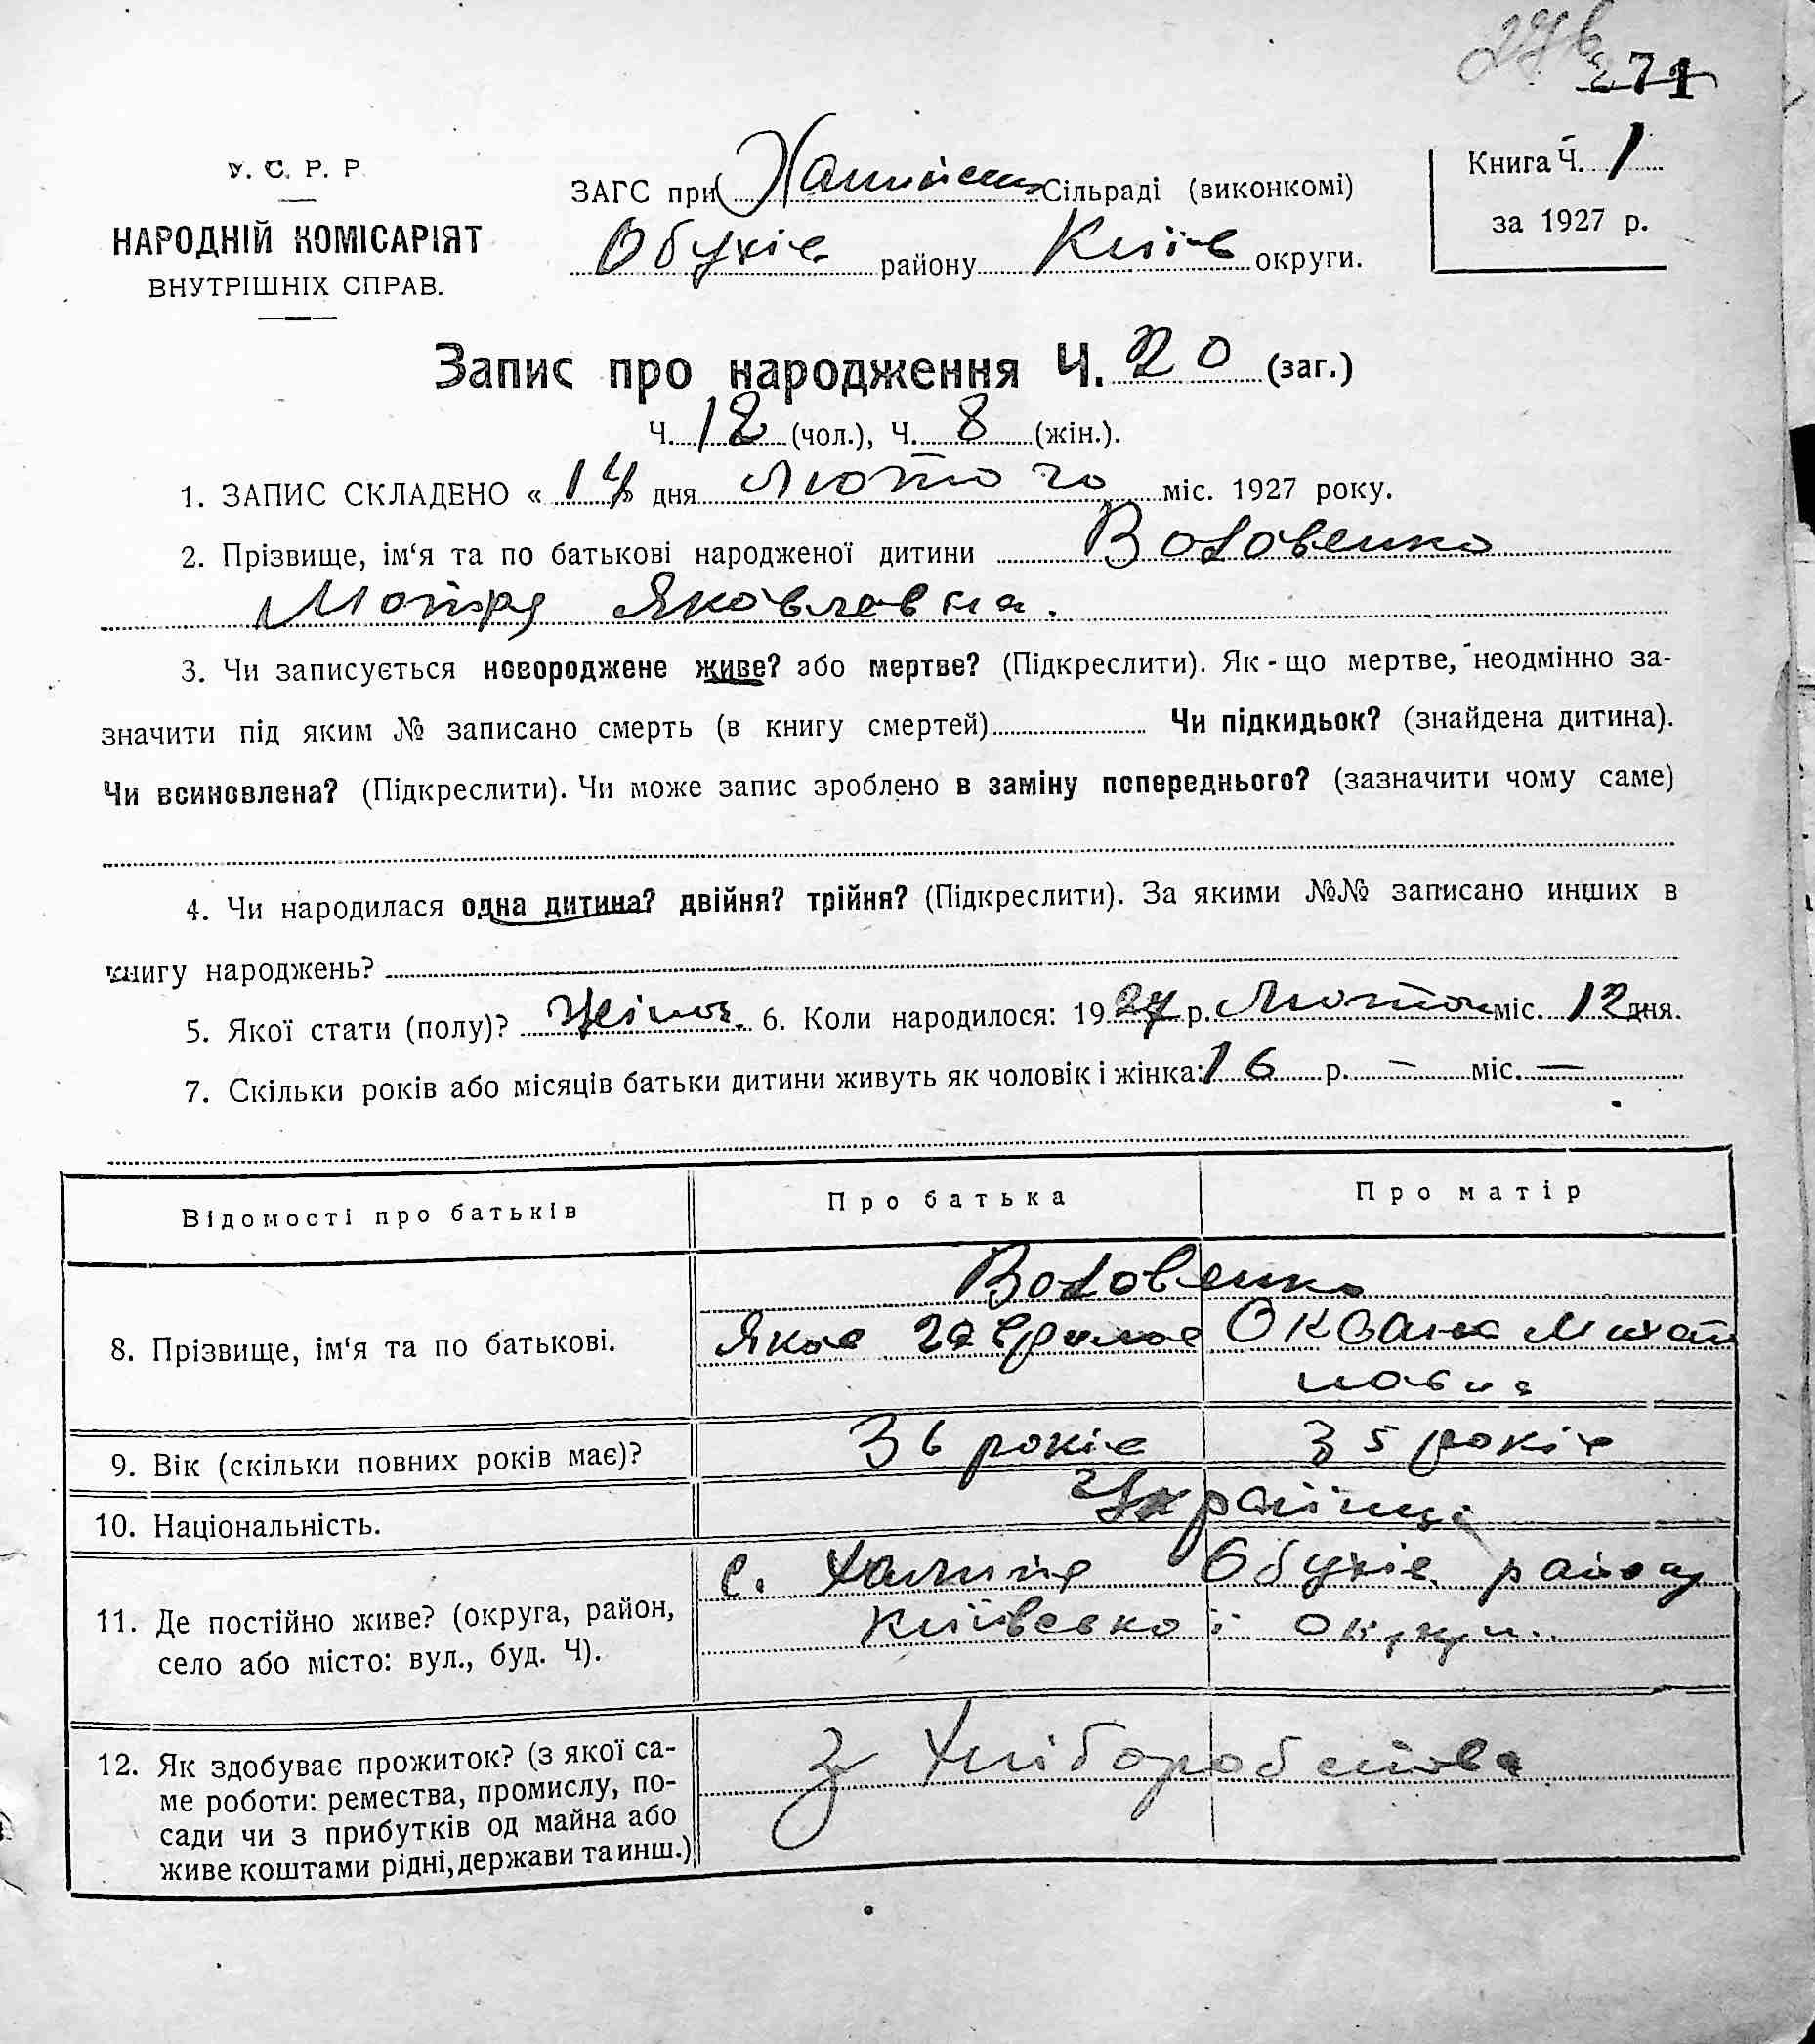 271
У. С. Р. Р.
НАРОДНІЙ КОМІСАРІЯТ
ВНУТРІШНІХ СПРАВ.
ЗАГС при Сільраді (виконкомі)
Обухів району Київ округи.
Книга Ч. 1
за 1927 р.
Запис про народження Ч. 20 (заг.)
Ч. 12 (чол.), Ч. 8 (жін.).
1. ЗАПИС СКЛАДЕНО « 14 » дня лютого міс. 1927 року.
2. Прізвище, ім‘я та по батькові народженої дитини Вовковенко
Мотря Яковлевна.
3. Чи записується новороджене живе? або мертве? (Підкреслити). Як-що мертве, неодмінно за-
значити під яким № записано смерть (в книгу смертей) Чи підкидьок? (знайдена дитина).
Чи всиновлена? (Підкреслити). Чи може запис зроблено в заміну попереднього? (зазначити чому саме)
4. Чи народилася одна дитина? двійня? трійня? (Підкреслити). За якими №№ записано инших в
книгу народжень?
5. Якої стати (полу)? Жіноч. 6. Коли народилося: 1927 р. Лютого міс. 12 дня.
7. Скільки років або місяців батьки дитини живуть як чоловік і жінка: 16 р. — міс. —
Відомості про батьків Про батька Про матір
8. Прізвище, ім‘я та по батькові.
Яков Гаврилов Оксана Михай
ловна
9. Вік (скільки повних років має)? 36 років 35 років
10. Національність. Українці
11. Де постійно живе? (округа, район,
село або місто: вул., буд. Ч).
с. Халипя Обухів. району
Київської округи.
12. Як здобуває прожиток? (з якої са-
ме роботи: ремества, промислу, по-
сади чи з прибутків од майна або
живе коштами рідні, держави та инш.)
З Хліборобства